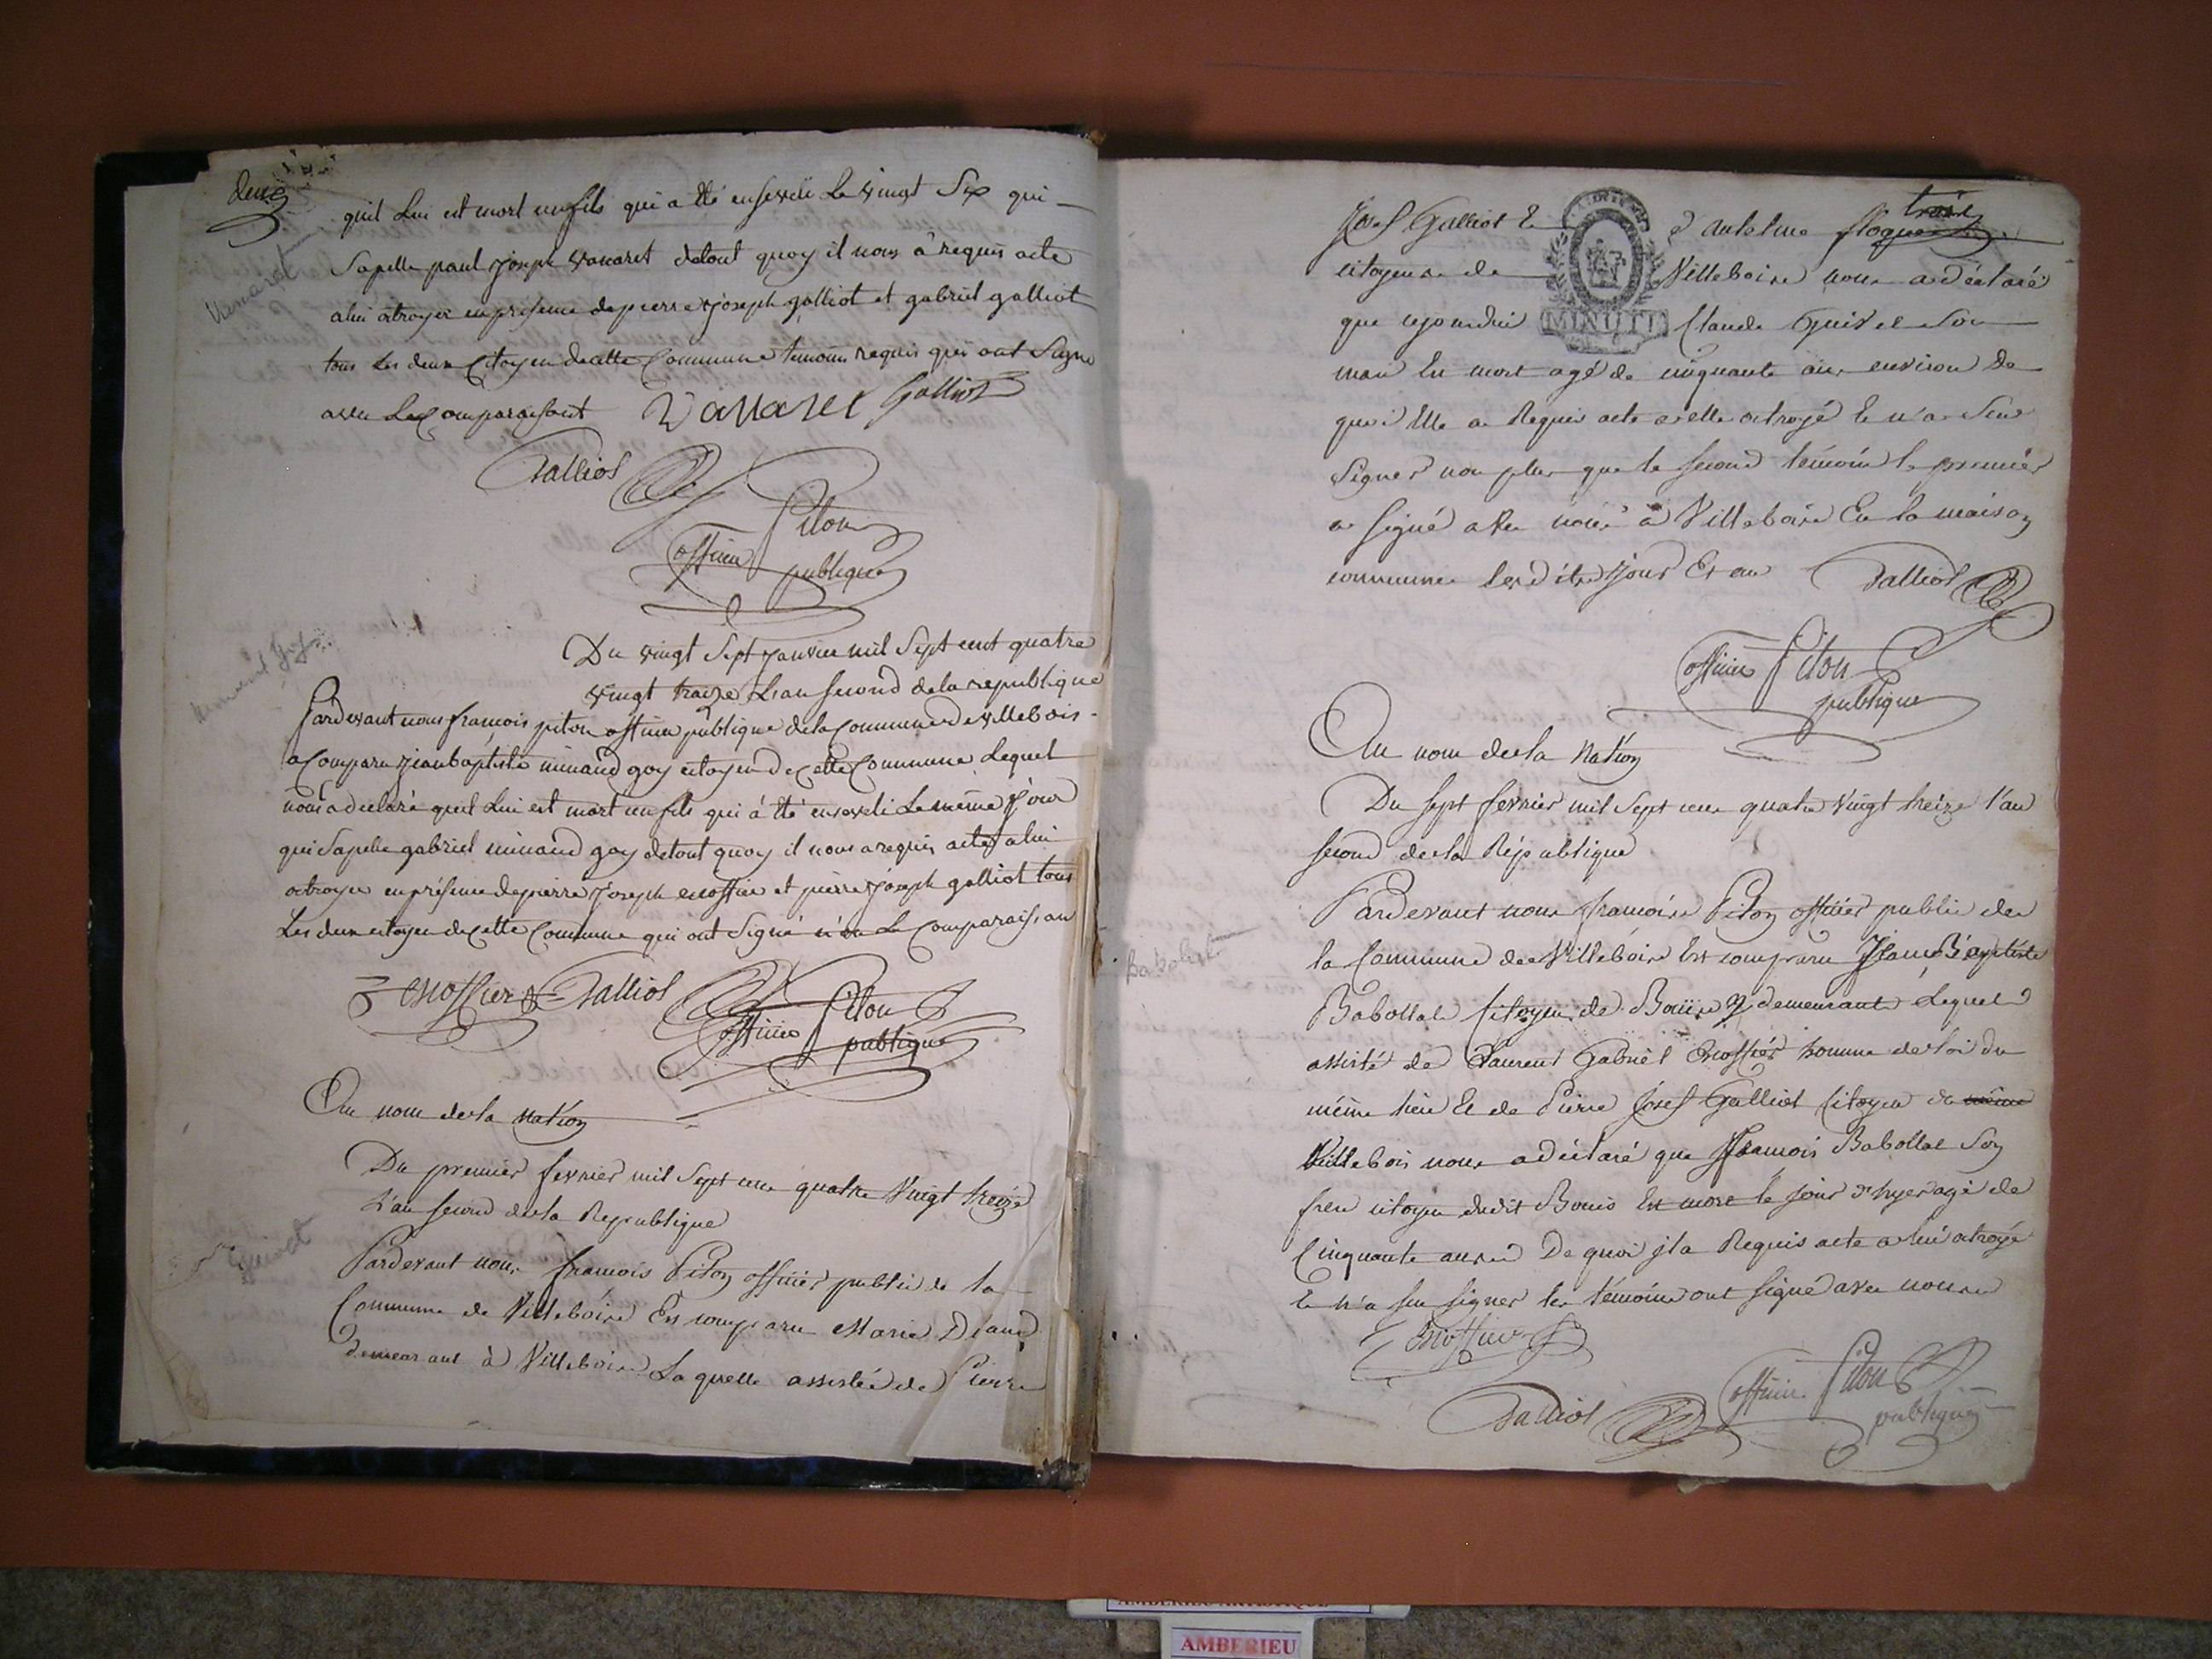 deux
quil Lui est mort un fils qui a été enseveli Le vingt Six qui
Sapelle paul joseph vanaret detout quoy il nous à requis acte
alui otroyer en presence de pierre joseph galliot et gabriel galliot
tous Les deux Citoyen de cette Commune témoins requis qui ont Signé
avec Le Comparaisant Vanaret Galliot
Galliot
Piton
officier publique
Du vingt Sept janvier mil Sept cent quatre
vingt traize L'an second de la republique
Pardevant nous françois piton officier publique de la Commune de villebois
a Comparu jean baptiste minand goy citoyen de cette Commune Lequel
nous a declaré quil Lui est mort un fils qui à été enseveli Le même jour
qui Sapelle gabriel minand goy detout quoy il nous a requis acte alui
octroyer en présence de pierre joseph escoffier et pierre joseph galliot tous
Les deux citoyen de cette Commune qui ont Signé Le Comparaissant
escoffier Galliot Piton
officier publique
Au nom de la Nation
Du premier fevrier mil Sept cent quatre vingt treize
L'an second de la Republique
Guivet
Pardevant nous françois Piton officier public de la
Commune de Villebois Est comparu Marie Diand
demeurant à Villebois Laquelle assistée de Pierre
trois
Josef Galliot Et d'antelme
citoyens de Villebois nous a déclaré
MINUTE
que cejourdhui Claude Guivet Son
mari Est mort agé de cinquante ans environ de
quoi Elle a Requis acte a elle octroyé Et n'a Seu
Signer non plus que le second témoin le premier
a signé avec nous à Villebois En la maison
commune lesdits jour Et an Galliot
officier Piton
publique
Au nom de la Nation
Du sept fevrier mil Sept cent quatre vingt treize l'an
second de la République
Pardevant nous françois Piton officier public de
Babolat
la Commune de Villebois Est comparu Jean Baptiste
Babollat Citoyen de Bouis y demeurant Lequel
assisté de Laurent Gabriel Escoffier homme de loi du
même lieu Et de Pierre Josef Galliot Citoyen de même
Villebois nous a déclaré que françois Babollat Son
frere citoyen dudit Bouis Est mort le jour d'hyer agé de
Cinquante ans De quoi il a Requis acte a lui octroyé
Et n'a seu signer les témoins ont signé avec nous
Escoffier
Galliot officier Piton
publique
AMBERIEU